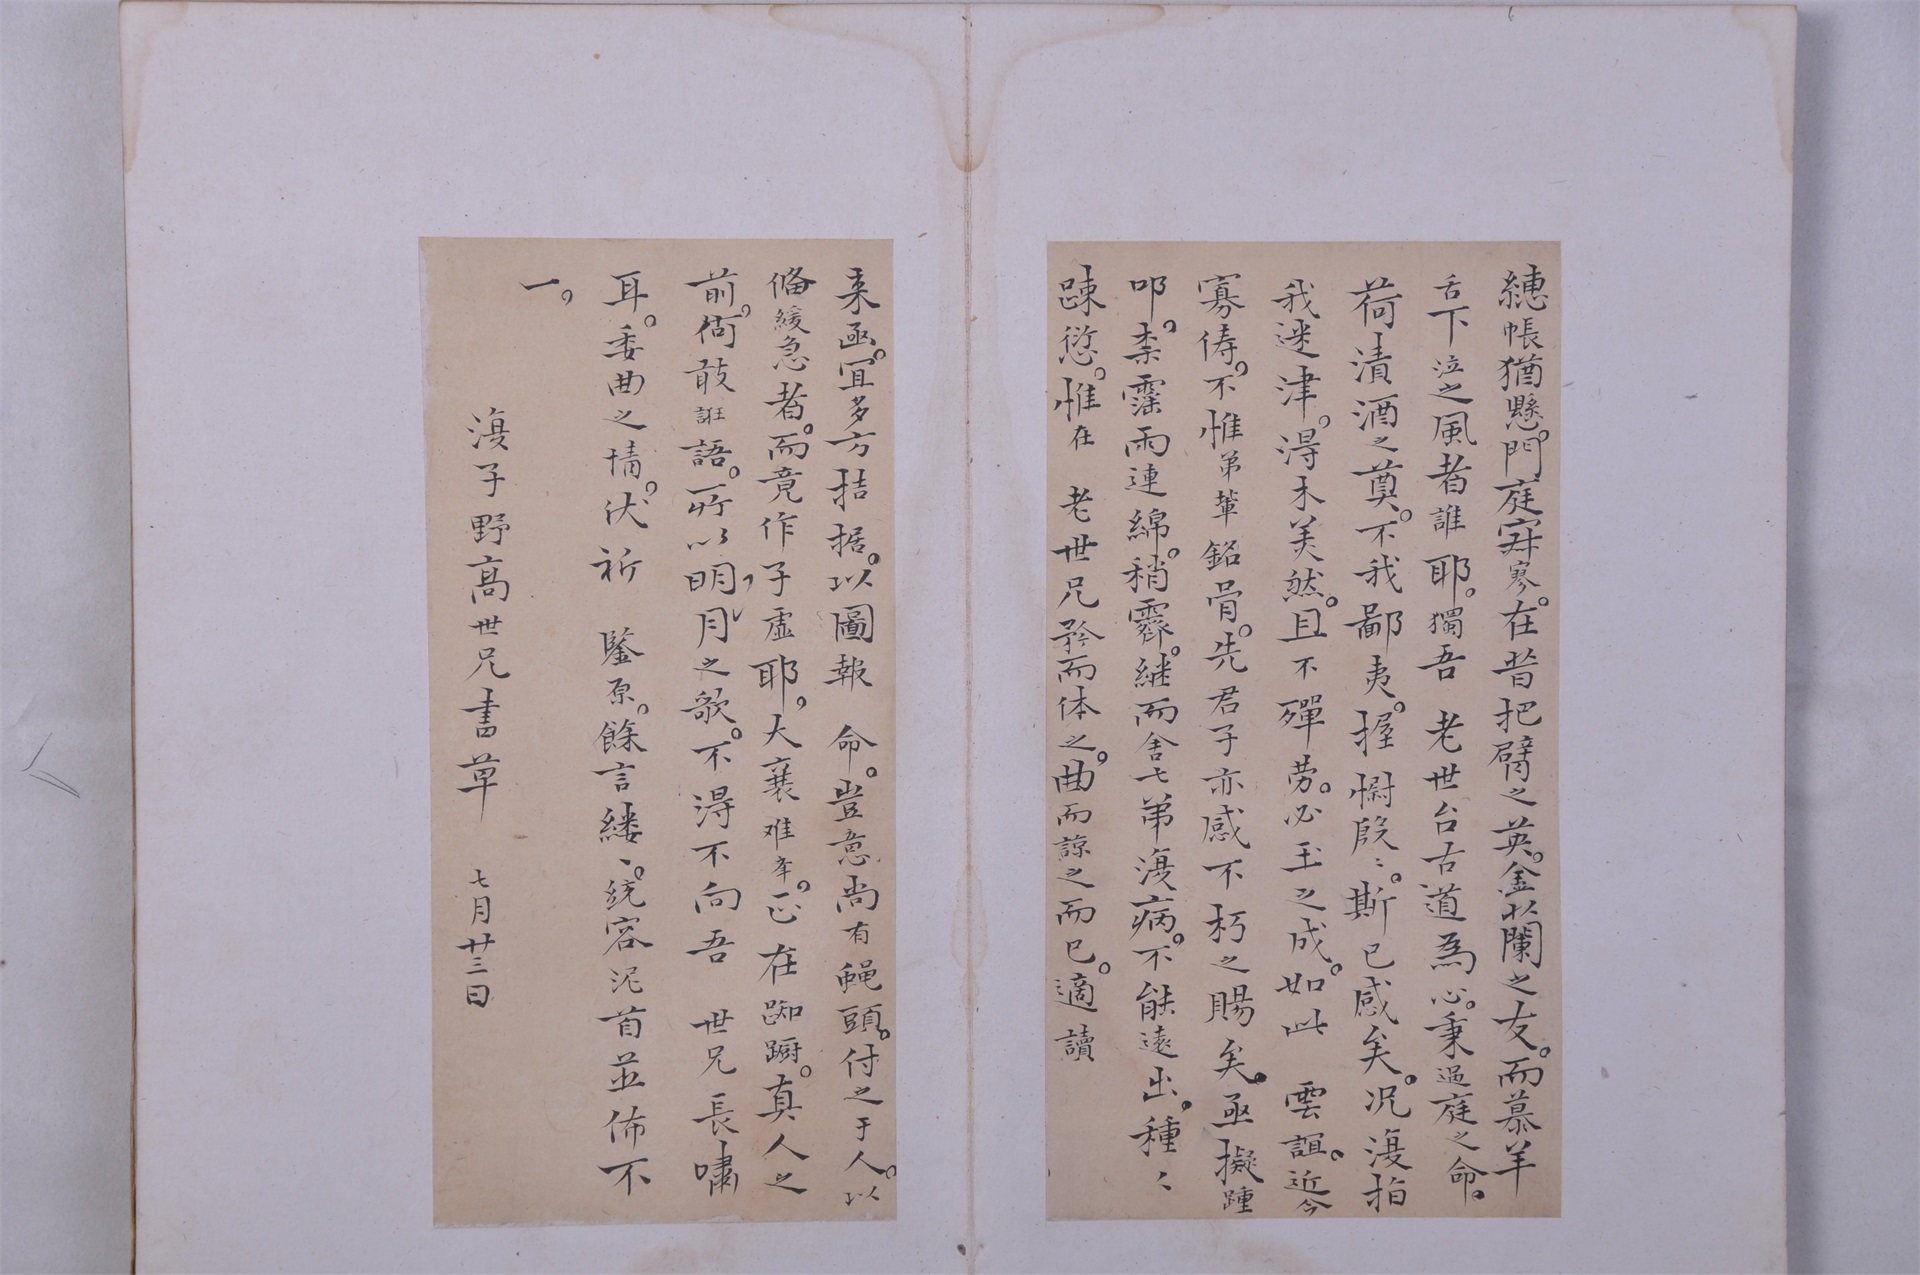 繐帳猶懸。門庭寂寥。在昔把臂之英。金蘭之友。而慕羊
舌下泣之風者誰耶。獨吾 老世台古道為心。秉過庭之命。
荷漬酒之奠。不我鄙夷。握慰殷〻。斯已感矣。况復指
我迷津。得木美然。且不殫劳。必玉之成。如此 雲誼。近今
寡儔。不惟弟輩銘骨。先君子亦感不朽之賜矣。亟擬踵
叩。柰霪雨連綿。稍霽。継而舍七弟復病。不能遠出。種〻
踈愆。惟在 老世兄矜而体之。曲而諒之而已。適讀
来函。冝多方拮据。以圖報 命。豈意尚有蝇頭。付之于人。以
俻緩急者。而竟作子虚耶。大襄难牽。正在踟蹰。真人之
前。何敢誑語。所以明月之歌。不得不向吾 世兄長嘯
耳。委曲之情。伏祈 鑒原。餘言縷〻。統容泥首並佈不
一。
復子野高世兄書草 七月廿三日